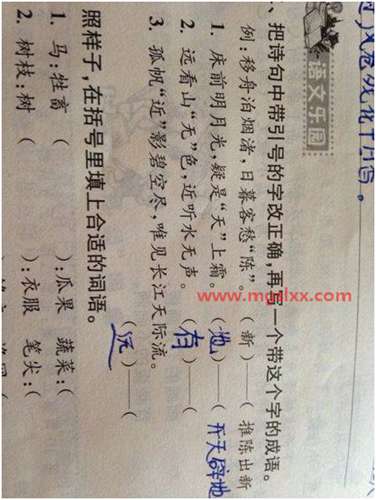 语文乐园
、把诗句中带引号的字改正确，再写一个带这个字的成语。
例：移舟泊烟渚，日暮客愁“陈”。（新）——（推陈出新
1. 床前明月光，疑是“天”上霜。（地）——（开天辟地
2. 远看山“无”色，近听水无声。（有）——（
3. 孤帆“近”影碧空尽，唯见长江天际流。（远）——（
照样子，在括号里填上合适的词语。
1. 马：牲畜（ ）：瓜果 蔬菜：（
2. 树枝：树（ ）：衣服 笔尖：（
www.mgdlxx.com